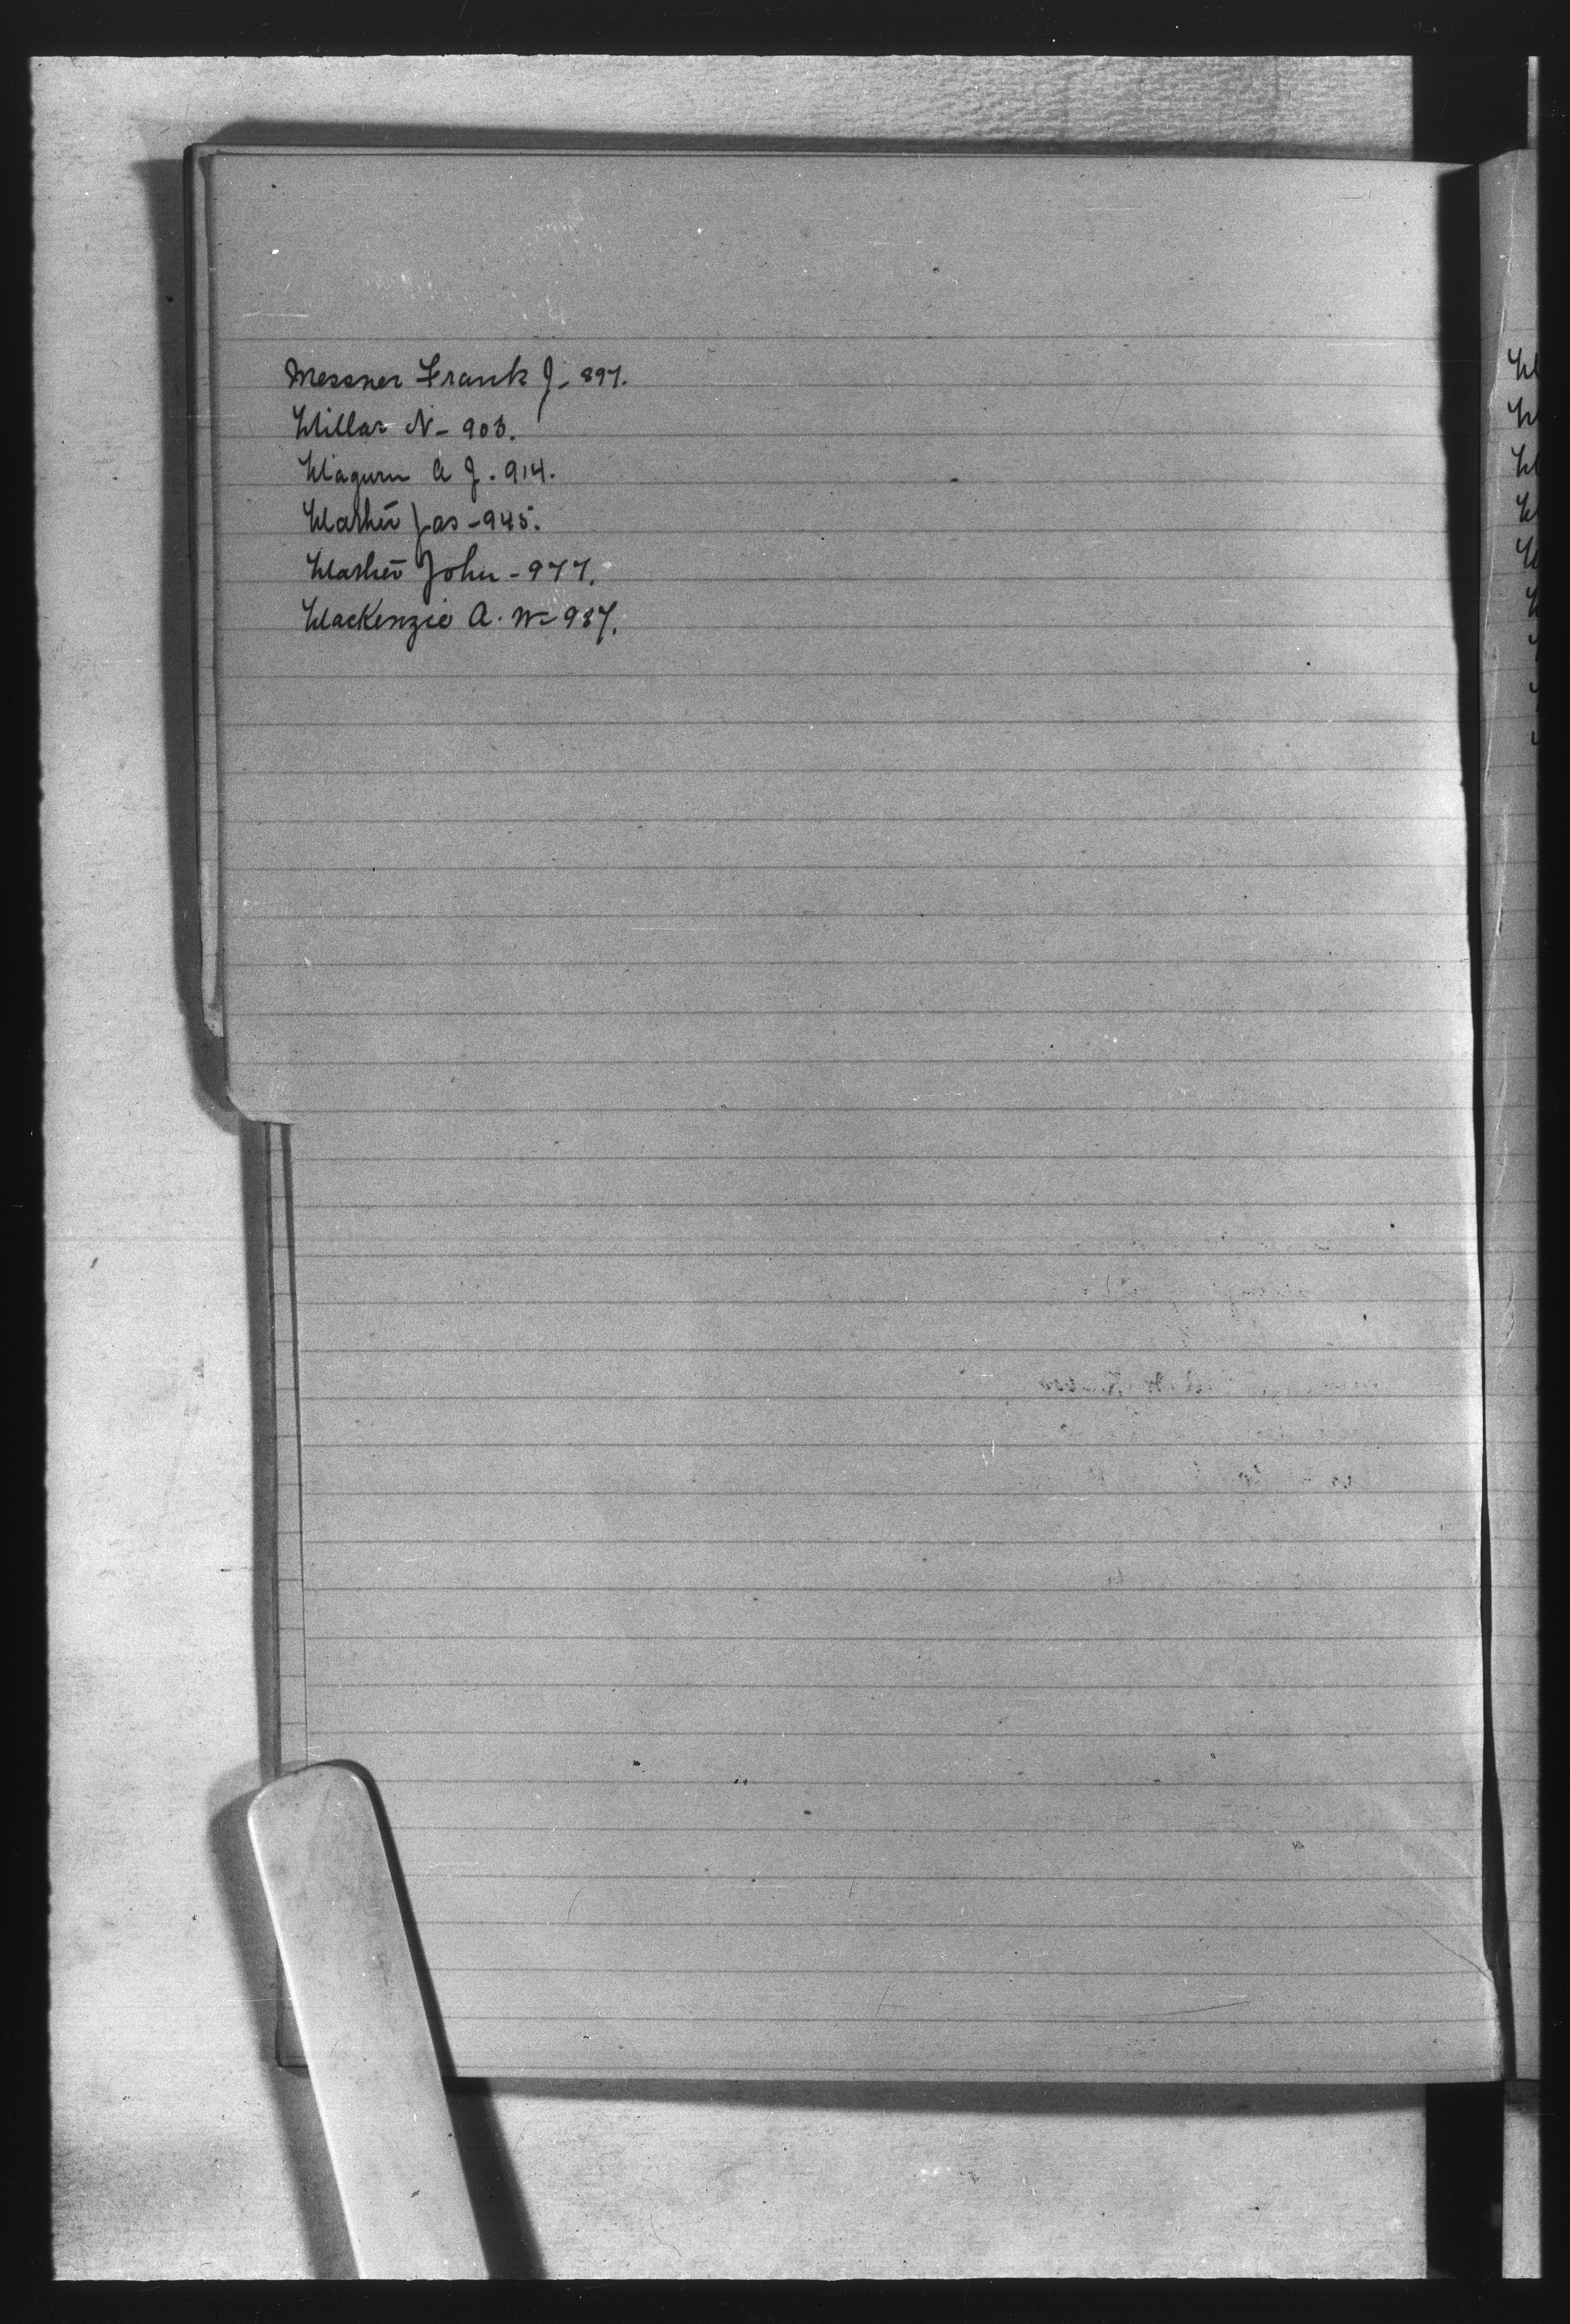 Messner Frank J - 897.
Millar N - 903.
Maguru A J. 914.
Jas - 945.
John - 977.
MacKenzie A. W - 987.